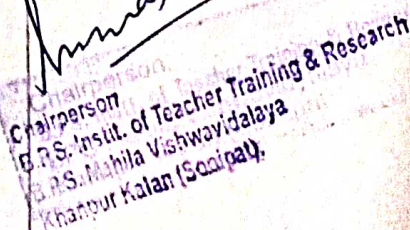 Chairperson
B.P.S. Instit. of Teacher Training & Research
B.P.S. Mahila Vishwavidalaya
Khanpur Kalan (Sonipat).